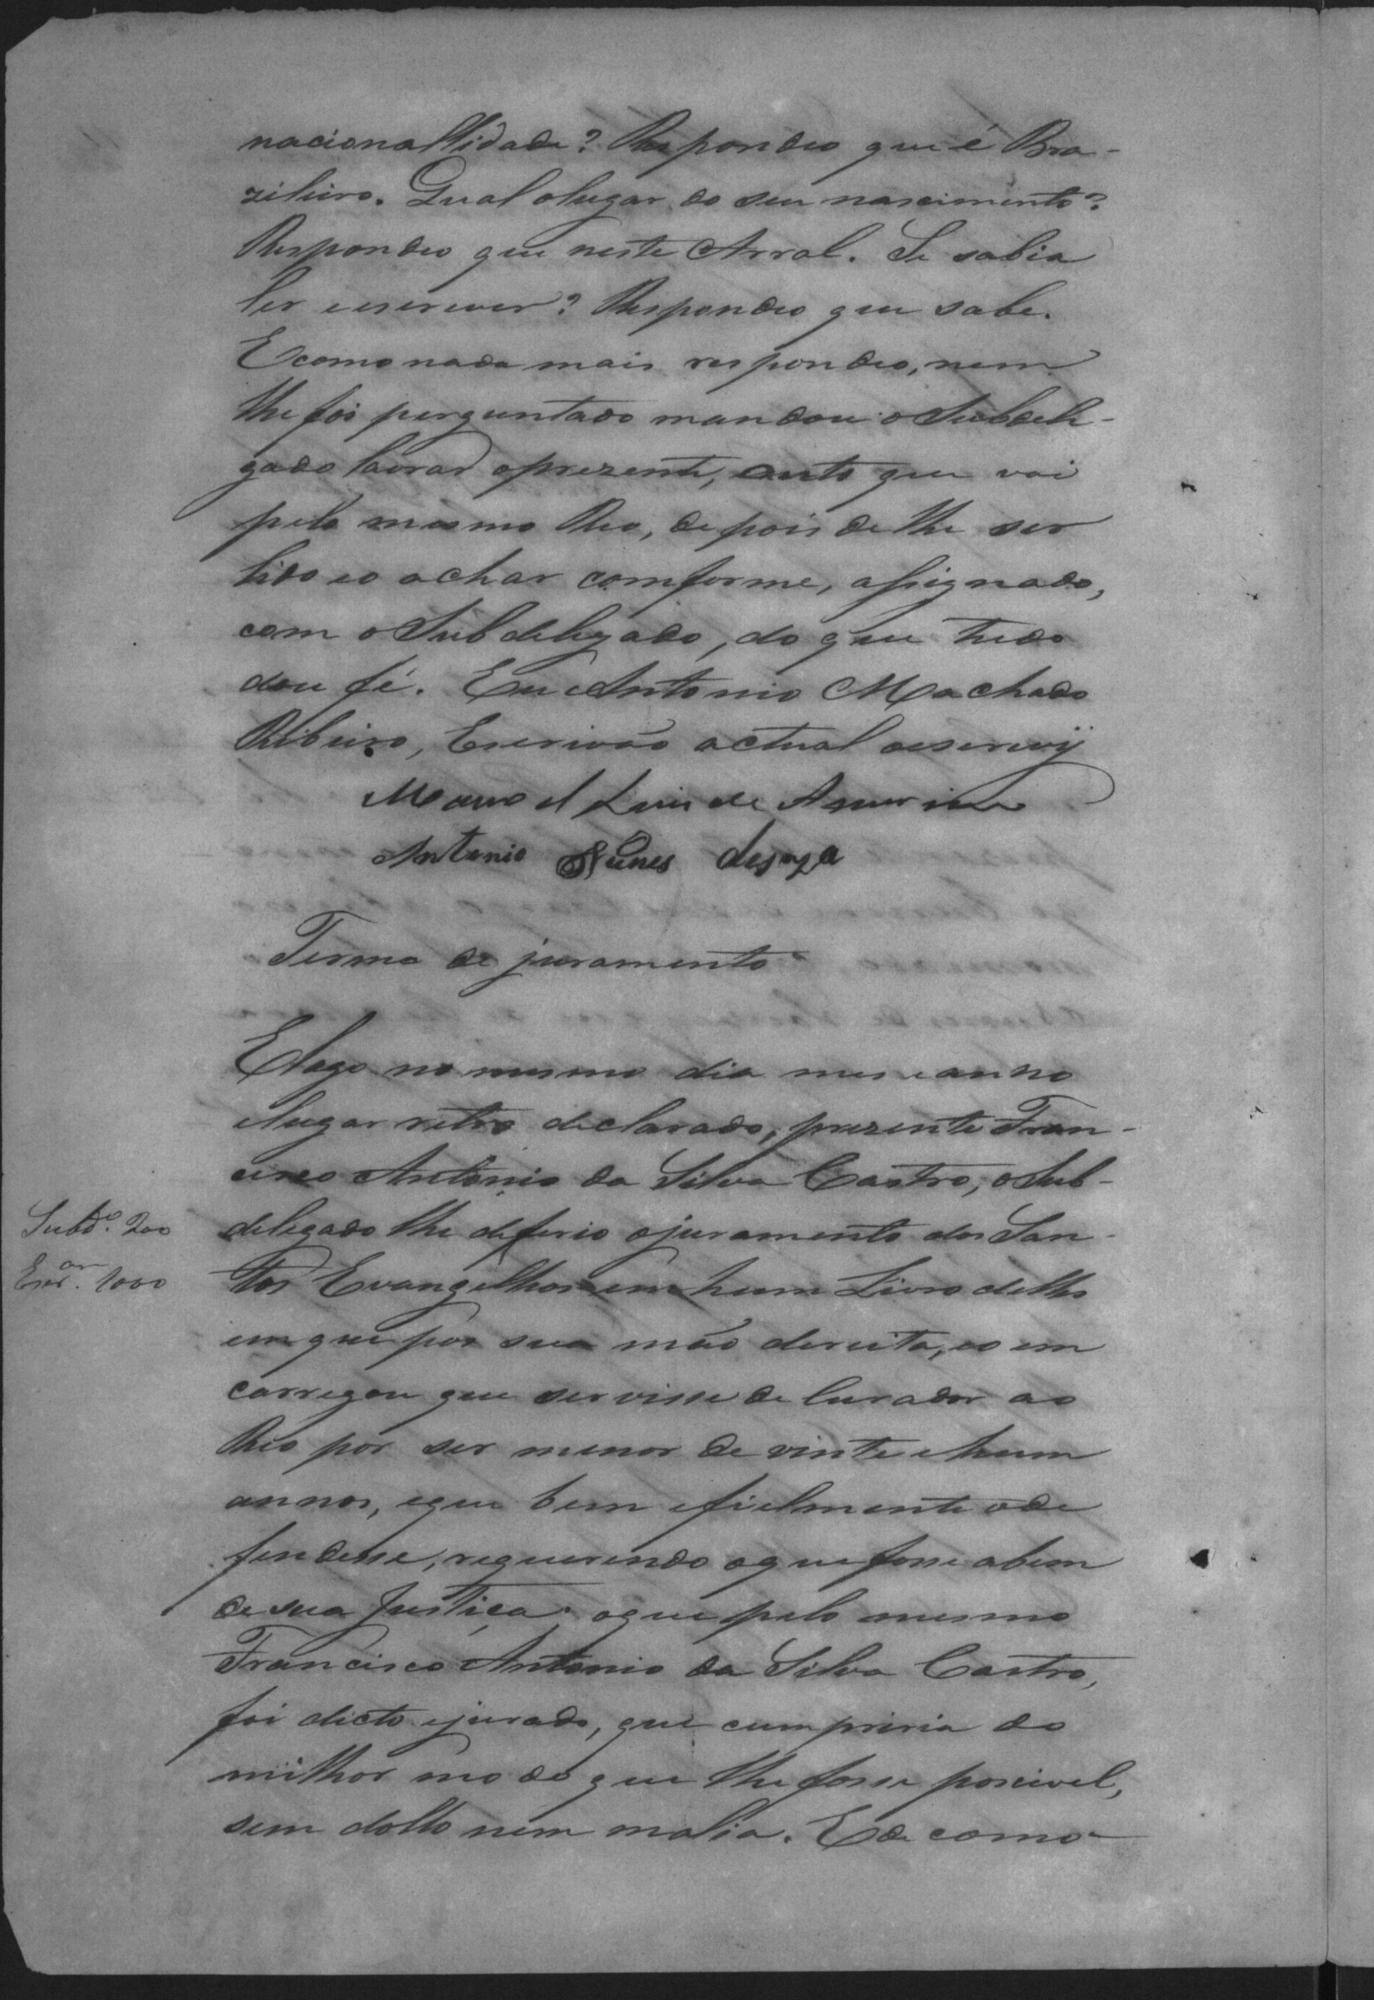 nacionallidade? Respondeo que é Bra-
zileiro. Qual olugar do seu nascimento?
Respondeo que neste Arral. Se sabia
ler eescrever? Respondeo que sabe.
Ecomo nada mais respondeo, nem
lhe foi perguntado mandou o Subdele-
gado lavrar oprezente, auto que vai
pelo mesmo Reo, depois de lhe ser
lido eo achar comforme, assignado,
com o Subdelegado, do que tudo
dou fé. Eu Antonio Machado
Ribeiro, Escrivão actual oescrevy
Manoel Luis de Amorim
Antonio Nunes desoza
Termo de juramento
Elogo no mesmo dia mes eanno
elugar retro declarado, prezente Fran-
cisco Antonio da Silva Castro, oSub-
delegado lhe deferio ojuramento dos San-
tos Evangelhos em hum Livro delles
em que pos sua mão dereita, eo em
carregou que servisse de Curador ao
Reo por ser menor de vinte ehum
annos, eque bem efielmente ode
fendesse, requerendo oque fosse abem
de sua Justiça. oque pelo mesmo
Francisco Antonio da Silva Castro,
foi dicto ejurado, que cumpriria do
milhor modo que lhe fosse possivel,
sem dollo nem malia. Ede como
Subd.º 200
Escr.am 1000